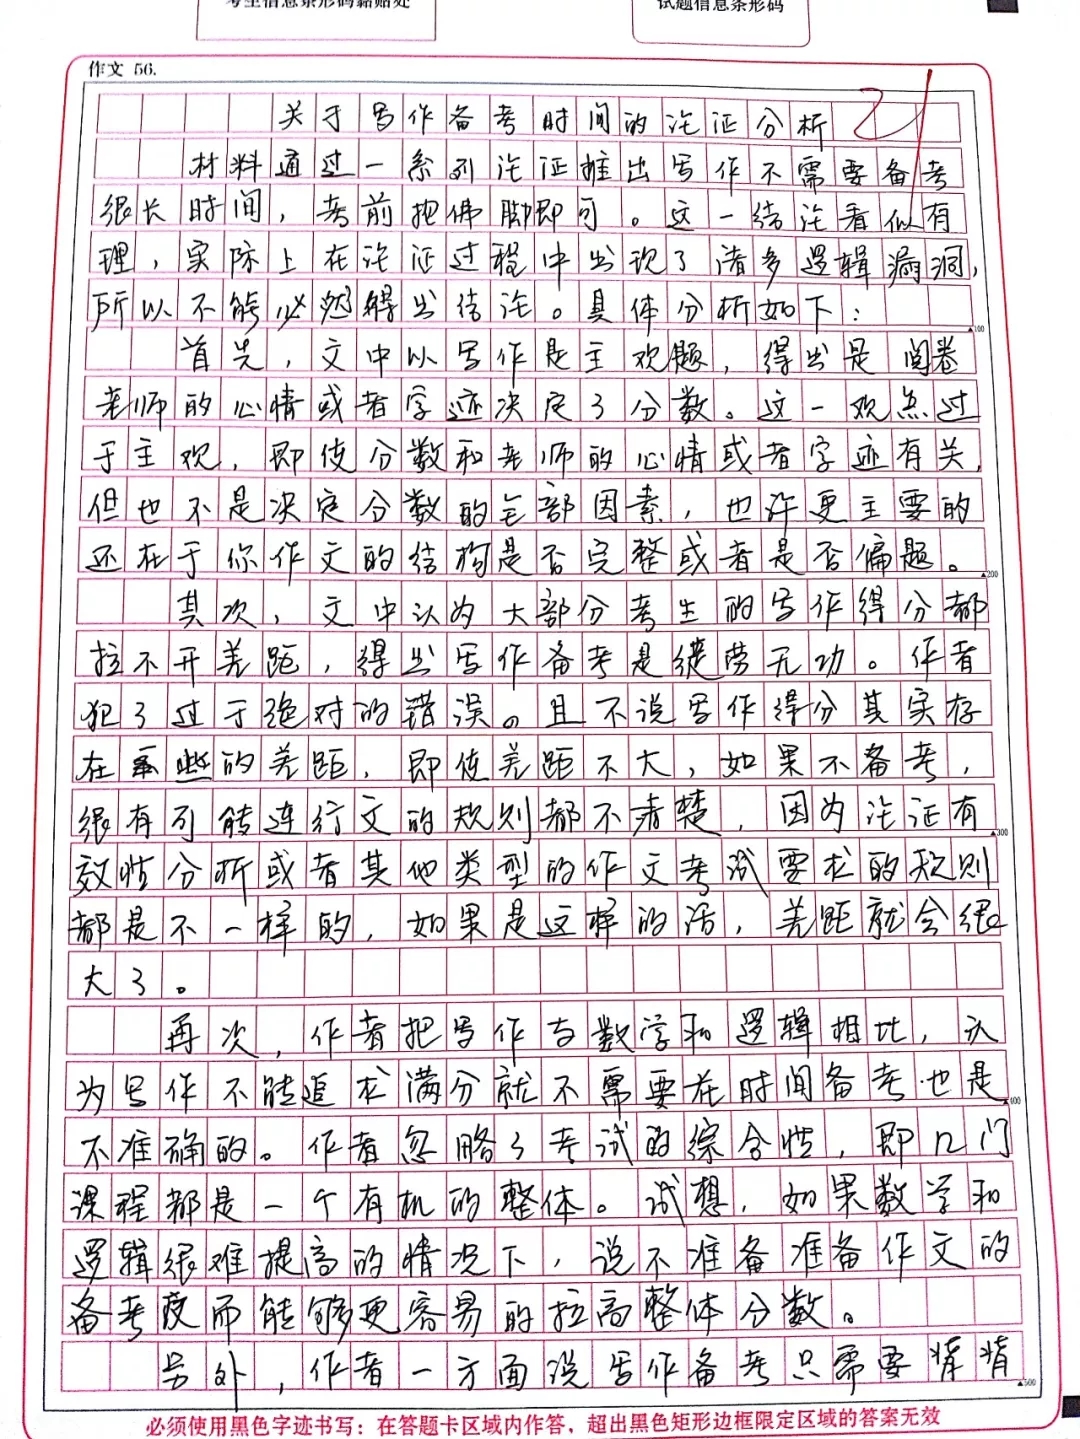 考生信息条形码粘贴处
试题信息条形码
作文 56.
关于写作备考时间的论证分析
材料通过一系列论证推出写作不需要备考
很长时间，考前抱佛脚即可。这一结论看似有
理，实际上在论证过程中出现了诸多逻辑漏洞，
所以不能必然得出结论。具体分析如下：
▲100
首先，文中以写作是主观题，得出是阅卷
老师的心情或者字迹决定了分数。这一观点过
于主观，即使分数和老师的心情或者字迹有关，
但也不是决定分数的全部因素，也许更主要的
还在于你作文的结构是否完整或者是否偏题。
▲200
其次，文中认为大部分考生的写作得分都
拉不开差距，得出写作备考是徒劳无功。作者
犯了过于绝对的错误。且不说写作得分其实存
在些的差距，即使差距不大，如果不备考，
很有可能连行文的规则都不清楚，因为论证有
▲300
效性分析或者其他类型的作文考试要求的规则
都是不一样的，如果是这样的话，差距就会很
大了。
再次，作者把写作与数学和逻辑相比，认
为写作不能追求满分就不需要在时间备考也是
▲400
不准确的。作者忽略了考试的综合性，即几门
课程都是一个有机的整体。试想，如果数学和
逻辑很难提高的情况下，说不准备准备作文的
备考反而能够更容易的拉高整体分数。
另外，作者一方面说写作备考只需要猜猜
▲500
必须使用黑色字迹书写：在答题卡区域内作答，超出黑色矩形边框限定区域的答案无效